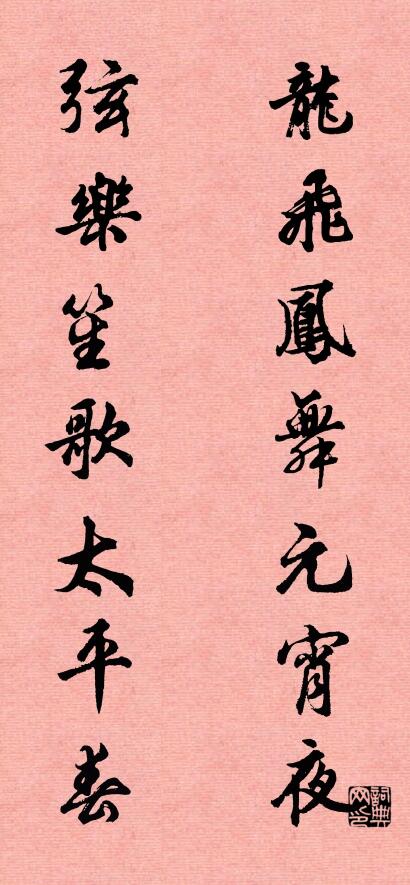 龍飛鳳舞元宵夜
弦樂笙歌太平春
詞典网印